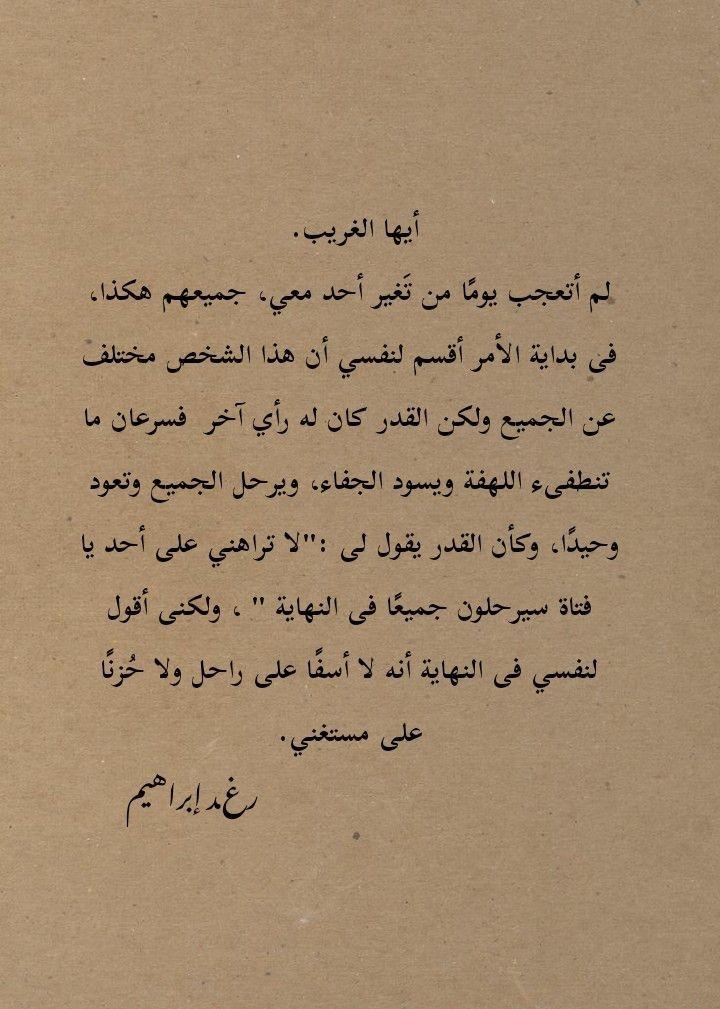 أيها الغريب.
لم أتعجب يومًا من تَغير أحد معي، جميعهم هكذا،
فى بداية الأمر أقسم لنفسي أن هذا الشخص مختلف
عن الجميع ولكن القدر كان له رأي آخر  فسرعان ما
تنطفىء اللهفة ويسود الجفاء، ويرحل الجميع وتعود
وحيدًا، وكأن القدر يقول لى :"لا تراهني على أحد يا
فتاة سيرحلون جميعًا فى النهاية " ، ولكنى أقول
لنفسي فى النهاية أنه لا أسفًا على راحل ولا حُزنًا
على مستغني.
رغد إبراهيم